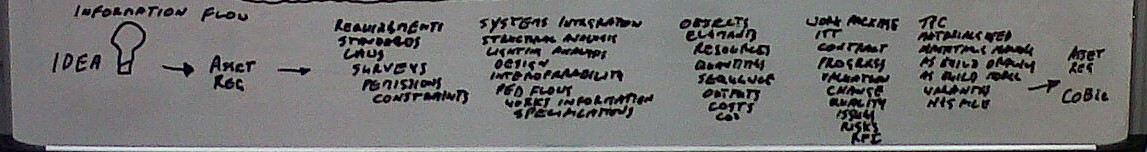 INFORMATION FLOW
IDEA
ASSET
REG
REQUIREMENTS
STANDARDS
LAWS
SURVEYS
PERMISSIONS
CONSTRAINTS
SYSTEMS INTEGRATION
STRUCTURAL ANALYSIS
LIGHTING ANALYSIS
DESIGN
INTEROPERABILITY
PED FLOWS
WORKS INFORMATION
SPECIFICATIONS
OBJECTS
ELEMENTS
RESOURCES
QUANTITIES
SEQUENCE
OUTPUTS
COSTS
WORK PACKAGE
ITT
CONTRACT
PROGRESS
VALUATION
CHANGE
QUALITY
ISSUES
RISKS
RFI
MATERIALS USED
AS BUILD DRAWING
AS BUILD MODEL
WARANTIES
H+S FILE
ASSET
REG
COBie